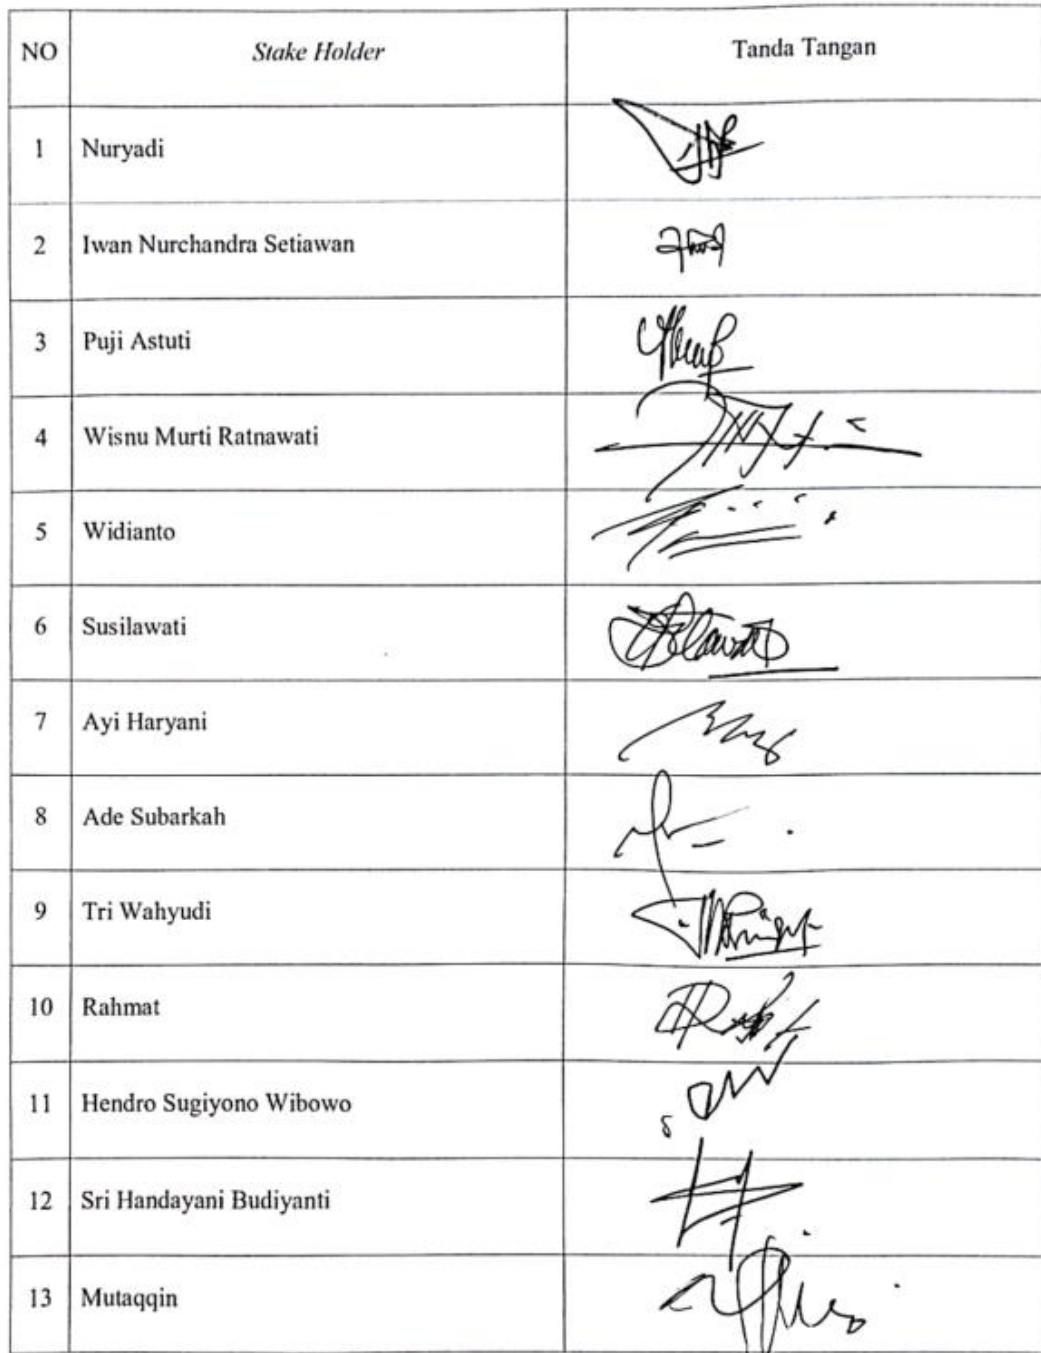 NO Stake Holder Tanda Tangan
1 Nuryadi
2 Iwan Nurchandra Setiawan
3 Puji Astuti
4 Wisnu Murti Ratnawati
5 Widianto
6 Susilawati
7 Ayi Haryani
8 Ade Subarkah
9 Tri Wahyudi
10 Rahmat
11 Hendro Sugiyono Wibowo
12 Sri Handayani Budiyanti
13 Mutaqqin